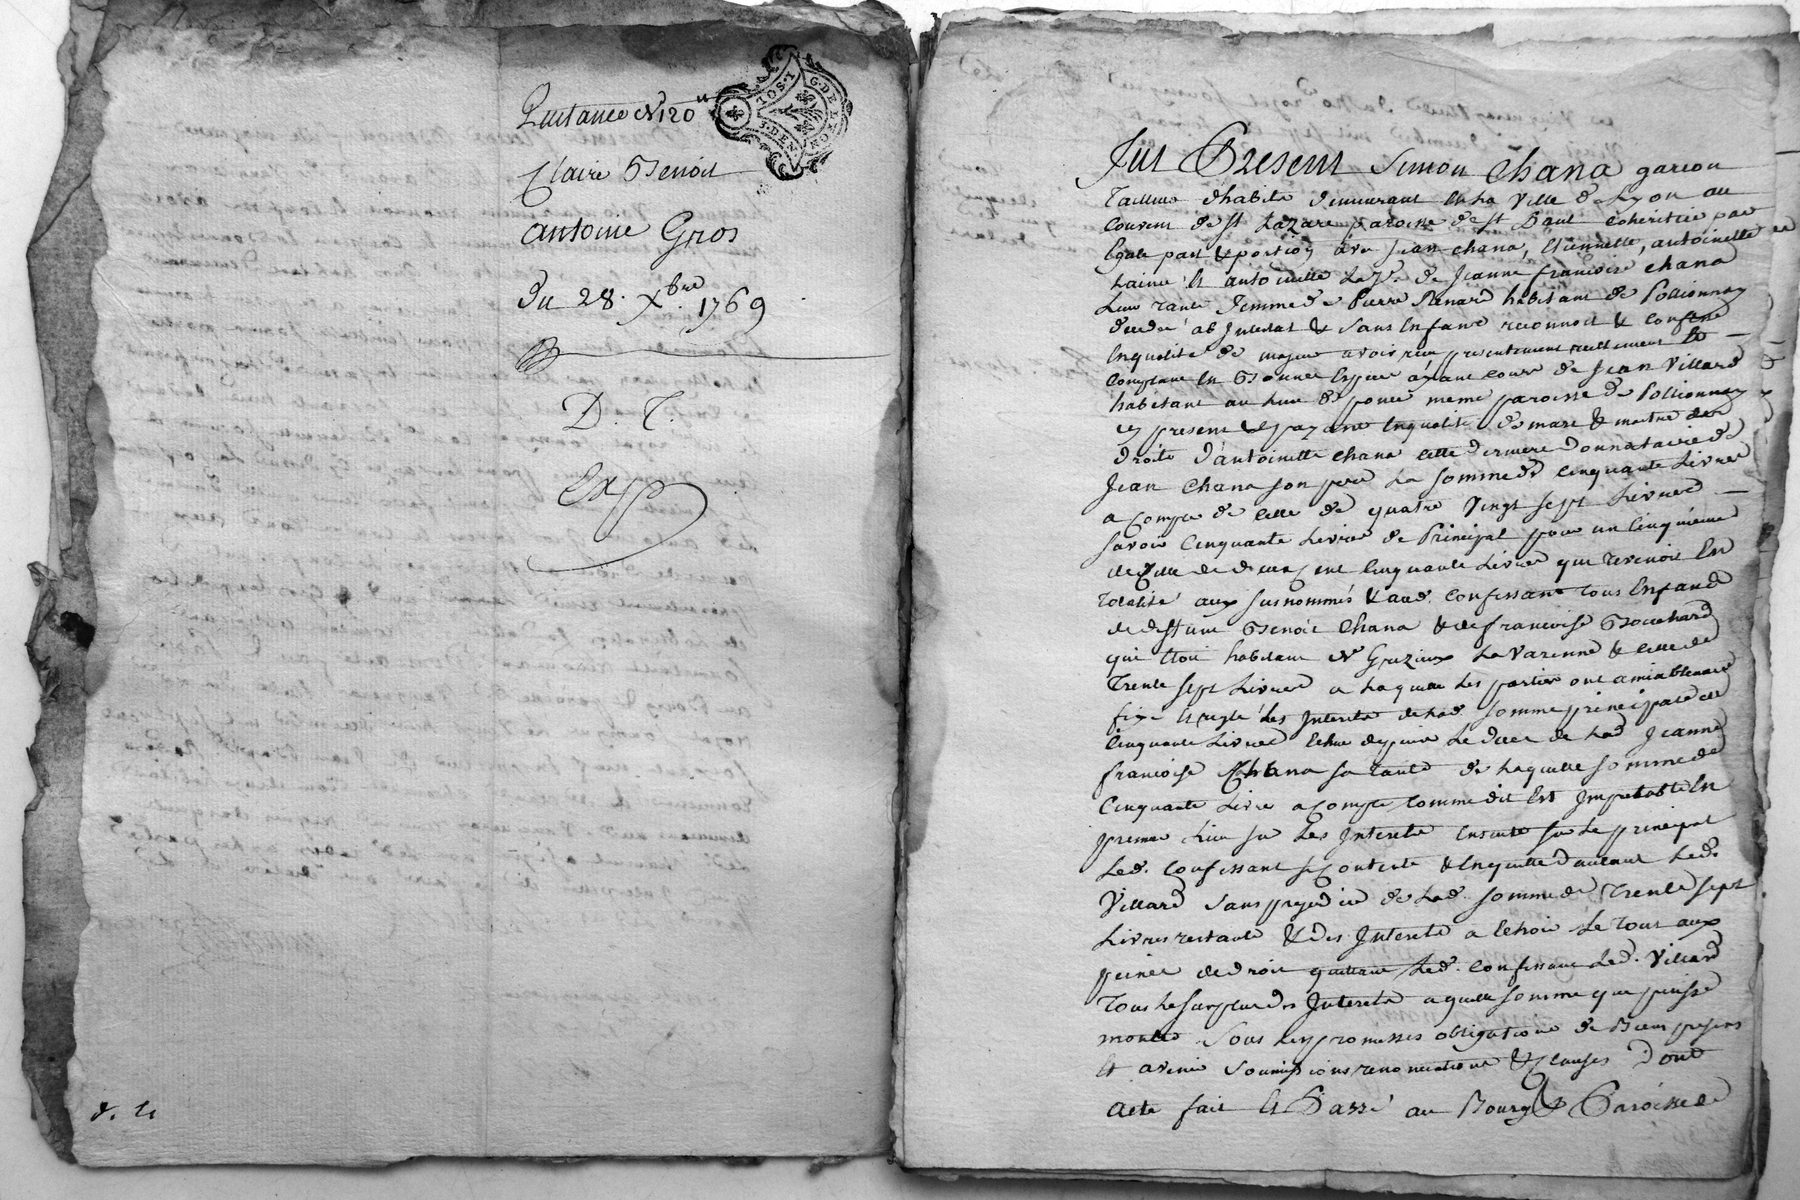 Quitance N 120
G. DE LYON
2 SOLS
J. DEN
Claire Benoit
antoine Gros
du 28. Xbre 1769
D. C.
Exp
Fut Present Simon Chana garcon
Tailleur d'habits demeurant En la Ville de Lyon au
Couvent de St Lazare paroisse de st Paul Coheritier par
Egale part & portion avec Jean Chana, Etiennette, antoinette
Lainée Et antoinette La Je. de Jeanne francoise Chana
Leur Tante femme de Pierre Renard habitant de Pollionnay
decedée ab Intestat & sans Enfans reconnoit & Confesse
Enqualité de majeur avoir reçu presentement reellement
Comptant En Bonnes Especes ayant Cours de Jean Villard
habitant au Lieu de meme paroisse de Pollionnay
cy present & payant Enqualité de mary & maitre des
droits d'antoinette Chana cette derniere donnataire de
Jean Chana son pere La Somme de Cinquante Livres
a Compte de Celle de quatre Vingt sept Livres
savoir Cinquante Livres de Principal pour un Cinquieme
de Celle de deux Cent Cinquante Livres qui Revenoit En
Totalité aux susnommés & aud. Confessant Tous Enfans
de deffunt Benoit Chana & de francoise Bouchard
qui Etoit habitant a Grezieux La Varenne & Celle de
Trente sept Livres a Laquelle Les parties ont amiablement
fixé Et reglé Les Interets de Lad. somme principale de
Cinquante Livres Echus depuis Le deces de Lad Jeanne
francoise Chana sa Tante de Laquelle Somme de
Cinquante Livres a Compte Comme dit Est Imputable En
premier Lieu sur Les Interets Ensuite sur Le principal
Led. Confessant se Contente & En quitte d'autant Led.
Villard sans prejudice de Lad. somme de Trente sept
Livres restante & des Interets a Echoir Le Tout aux
peines de droit quittant Led. Confessant Led. Villard
Tous Le surplus des Interets a quelle somme que puisse
monter Sous Les promesses obligations de Biens presens
Et avenir Soumissions renonciations & Clauses Dont
acte fait Et Passé au Bourg & Paroisse de